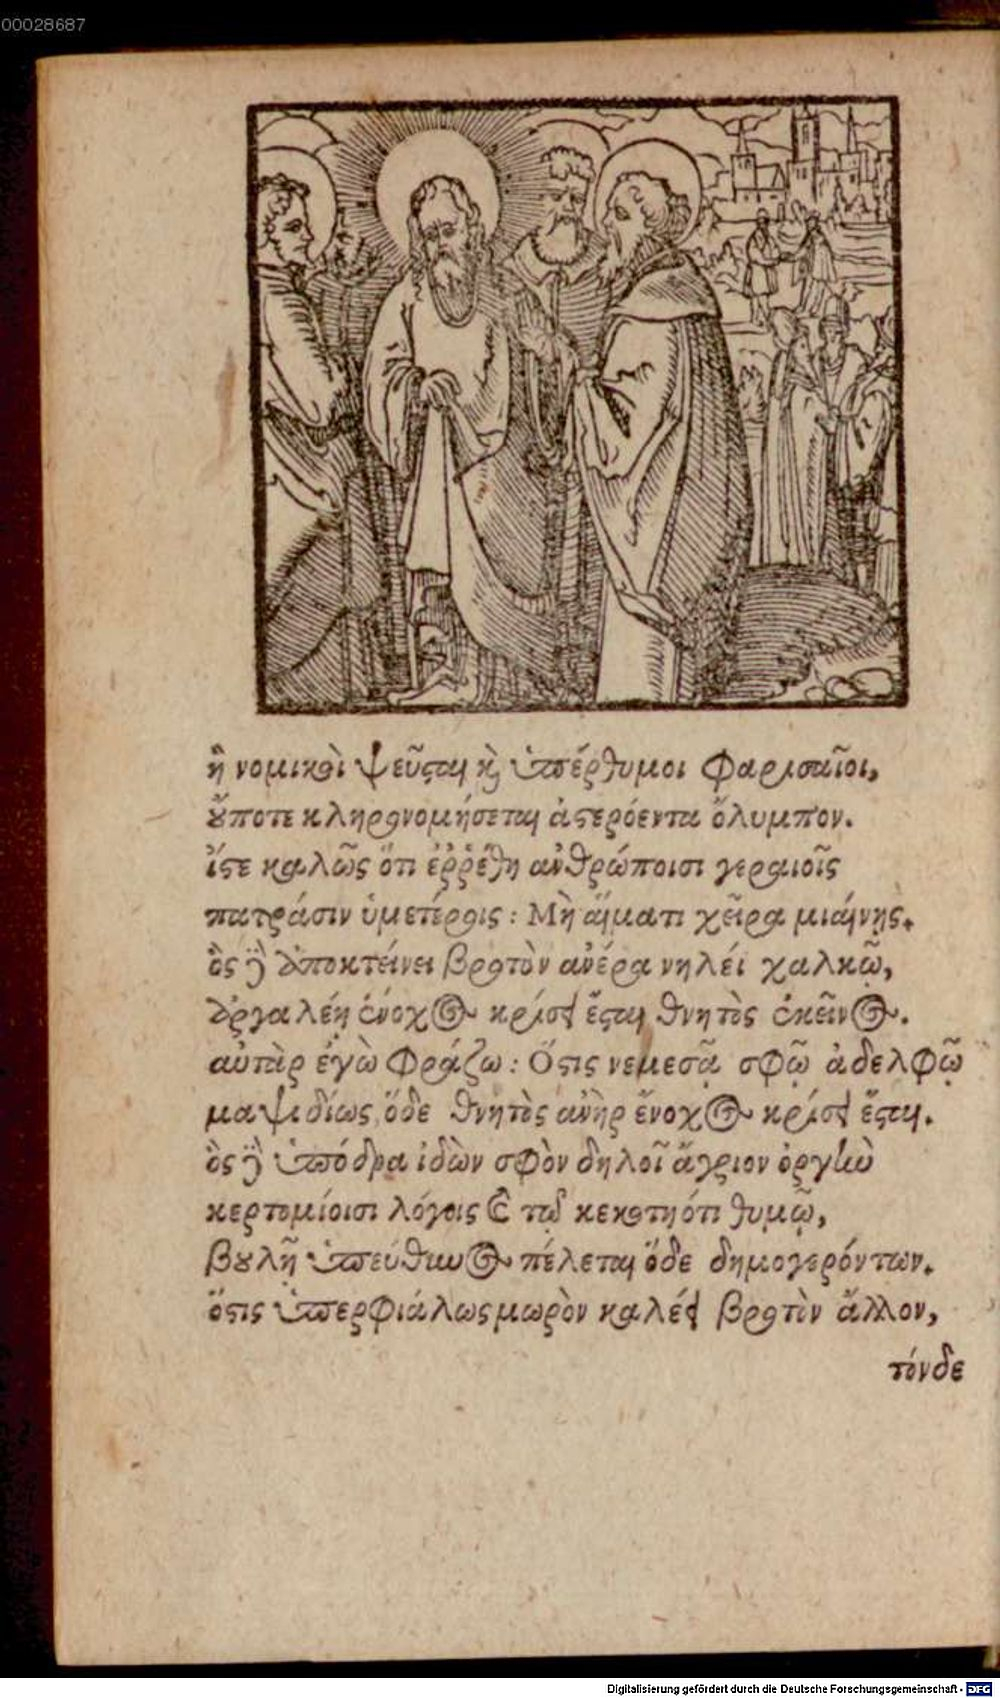 00028687
ἢ νομικοὶ ψεῦσται καὶ ὑπέρθυμοι Φαρισαῖοι,
οὔποτε κληρονομήσεται ἀστερόεντα ὄλυμπον.
ἴστε καλῶς ὅτι ἐῤῥέθη ἀνθρώποισι γεραιοῖς
πατράσιν ὑμετέροις : Μὴ αἵματι χεῖρα μιαίνῃς.
ὃς γὰρ ἀποκτείνει βροτὸν ἀνέρα νηλέϊ χαλκῷ,
ἀργαλέῃ ἔνοχος κρίσει ἔσται θνητὸς ἐκεῖνος.
αὐτὰρ ἐγὼ φράζω : Ὅστις νεμεσᾷ σφῷ ἀδελφῷ
μαψιδίως, ὅδε θνητὸς ἀνὴρ ἔνοχος κρίσει ἔσται.
ὃς γὰρ ὑπόδρα ἰδὼν σφὸν δηλοῖ ἄγριον ὀργὴν
κερτομίοισι λόγοις ἐν τῷ κεκοτηότι θυμῷ,
βουλῇ ὑπεύθυνος πέλεται ὅδε δημογερόντων.
ὅστις ὑπερφιάλως μωρὸν καλέει βροτὸν ἄλλον,
τόνδε
Digitalisierung gefördert durch die Deutsche Forschungsgemeinschaft - DFG